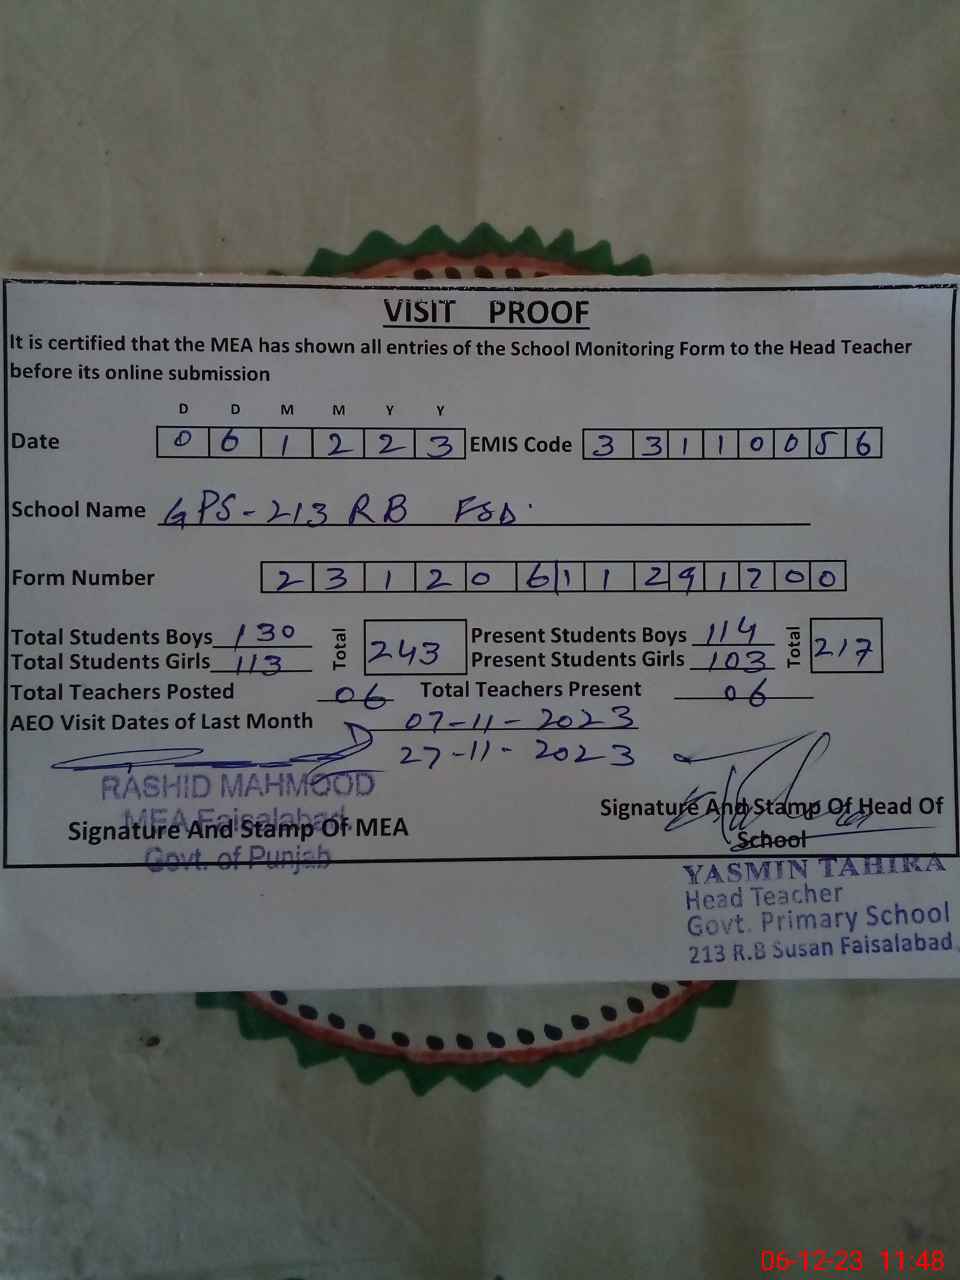 VISIT PROOF
It is certified that the MEA has shown all entries of the School Monitoring Form to the Head Teacher
before its online submission
D D M M Y Y
Date 0 6 1 2 2 3 EMIS Code 3 3 1 1 0 0 5 6
School Name GPS-213 RB FSD.
Form Number 2 3 1 2 0 6 1 1 2 9 1 2 0 0
Total Students Boys 130 Total 243 Present Students Boys 114 Total 217
Total Students Girls 113 Present Students Girls 103
Total Teachers Posted 06 Total Teachers Present 06
AEO Visit Dates of Last Month 07-11-2023
27-11-2023
RASHID MAHMOOD
MEA Faisalabad.
Signature And Stamp Of MEA
Govt. of Punjab
Signature And Stamp Of Head Of
School
YASMIN TAHIRA
Head Teacher
Govt. Primary School
213 R.B Susan Faisalabad
06-12-23 11:48